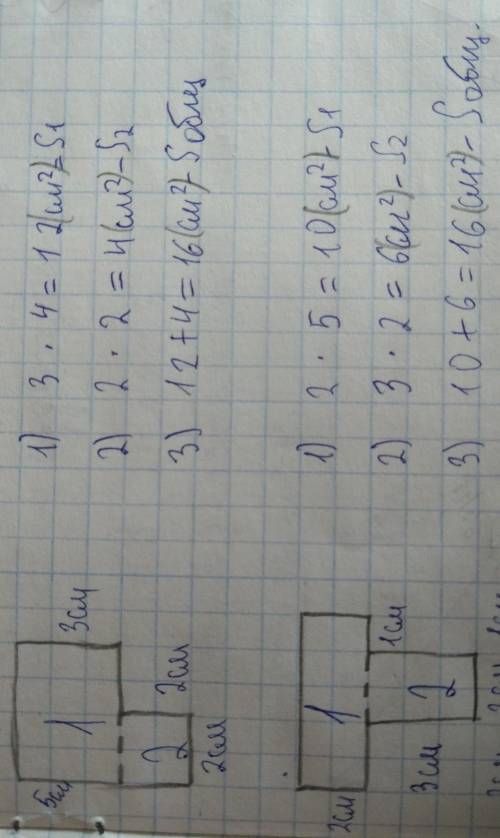 5см
1
3см
2
2см
2см
1) 3 · 4 = 12(см²)-S1
2) 2 · 2 = 4(см²)-S2
3) 12+4=16(см²)-Sобщ
1
1см
3см
2
1) 2 · 5 = 10(см²)-S1
2) 3 · 2 = 6(см²)-S2
3) 10+6=16(см²)-Sобщ.